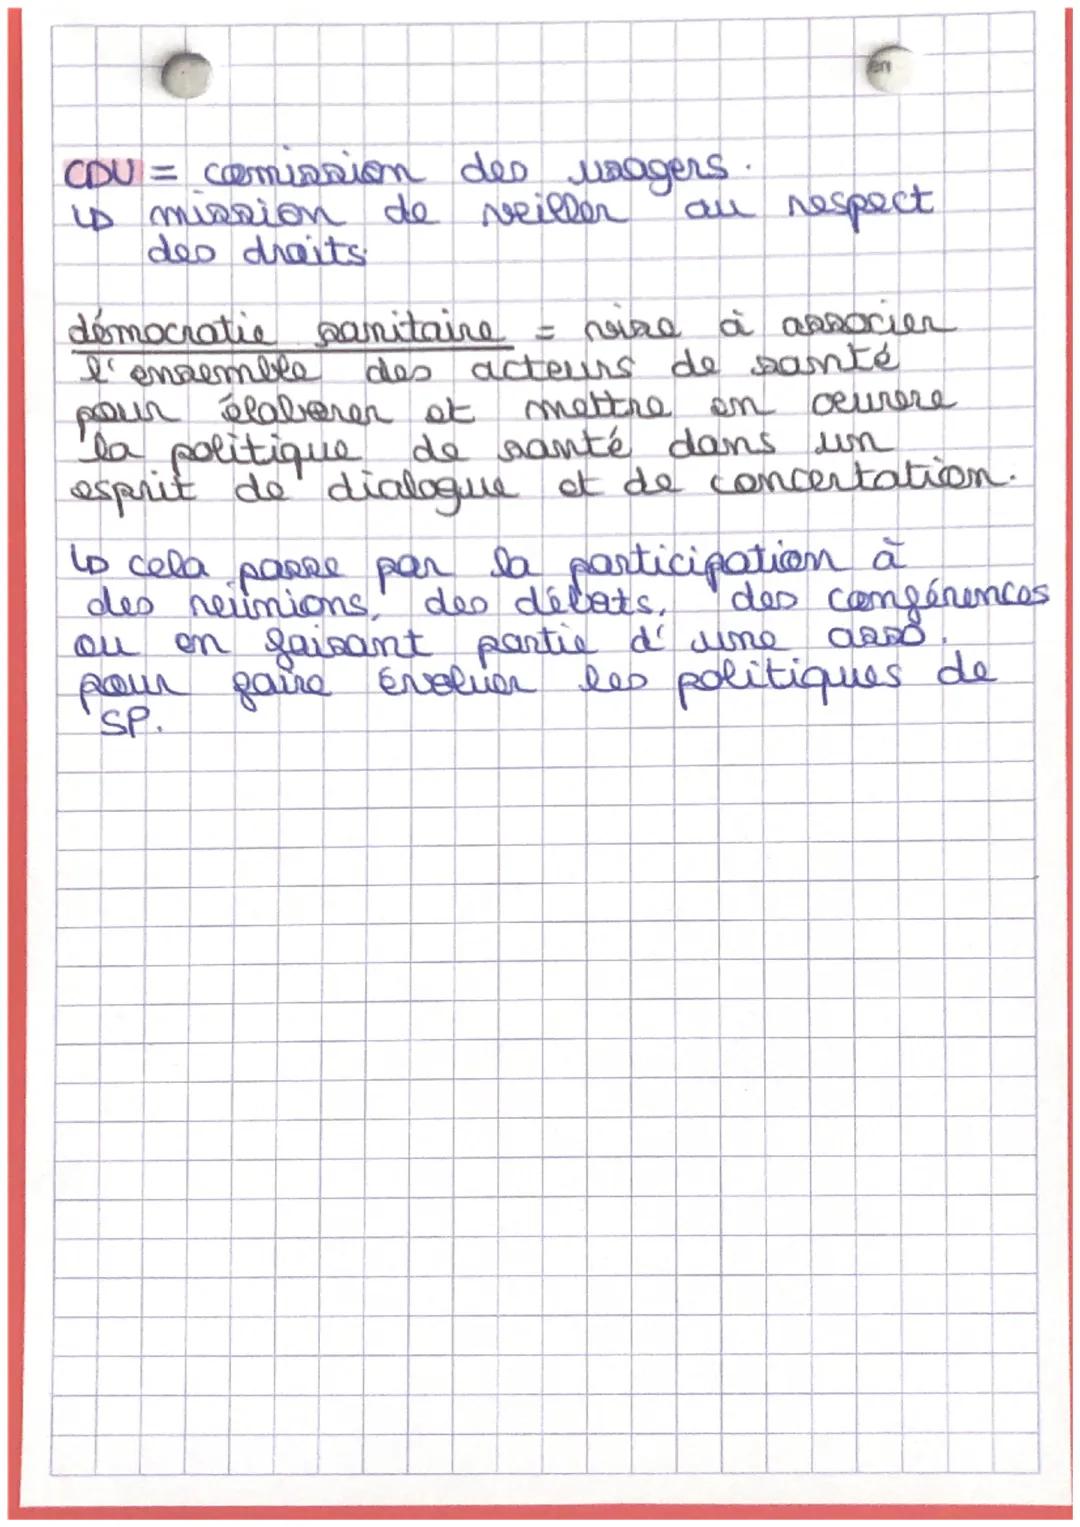 en
CDU = comission des usagers.
↳ mission de veiller au respect
des droits.
démocratie sanitaire = vise à associer
l'ensemble des acteurs de santé
pour élaborer et mettre en oeuvre
la politique de santé dans un
esprit de dialogue et de concertation.
↳ cela passe par la participation à
des réunions, des débats, des conférences
ou en faisant partie d'une asso.
pour faire évoluer les politiques de
SP.